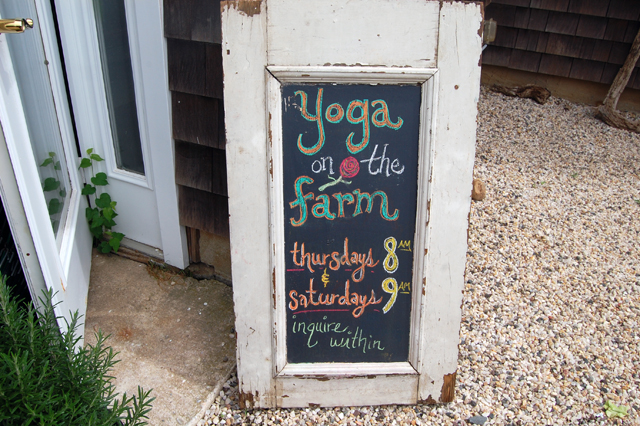 Yoga
on the
farm
thursdays 8 AM
&
saturdays 9 AM
inquire within